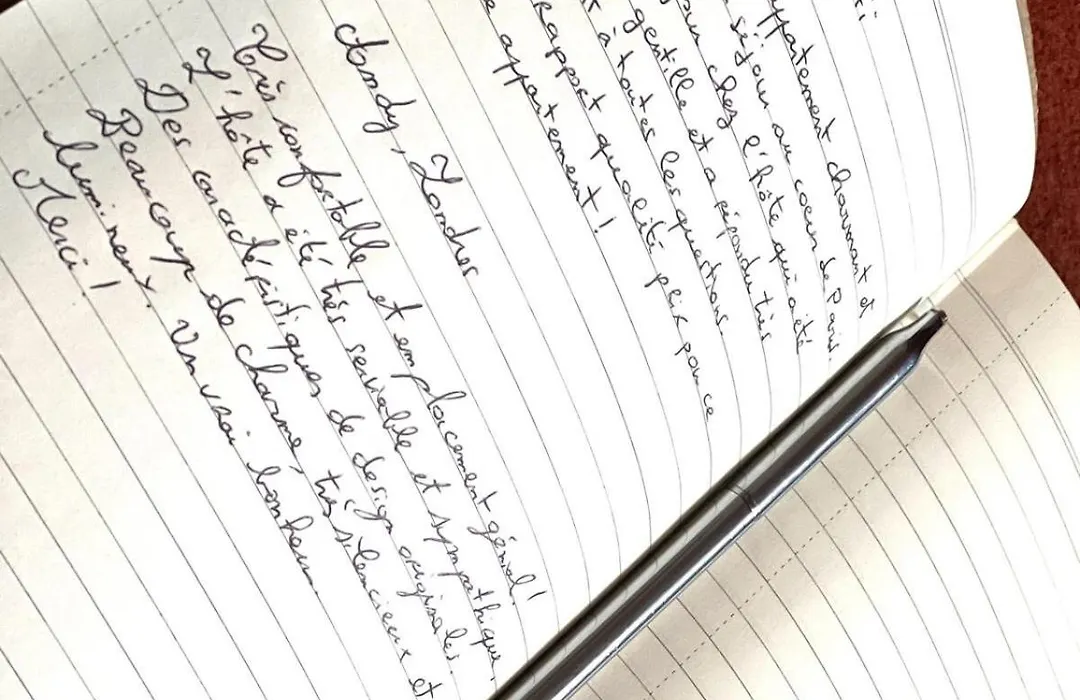 ti
appartement charmant et
séjour au coeur de Paris.
pour chez l'hôte qui a été
gentille et a répondu très
x à toutes les questions
rapport qualité prix pour ce
e appartement!
Andy, Londres
Très confortable et emplacement génial!
L'hôte a été très serviable et sympathique.
Des caractéristiques de design originales.
Beaucoup de charme, très silencieux et
lumineux. Un vrai bonheur.
Merci!